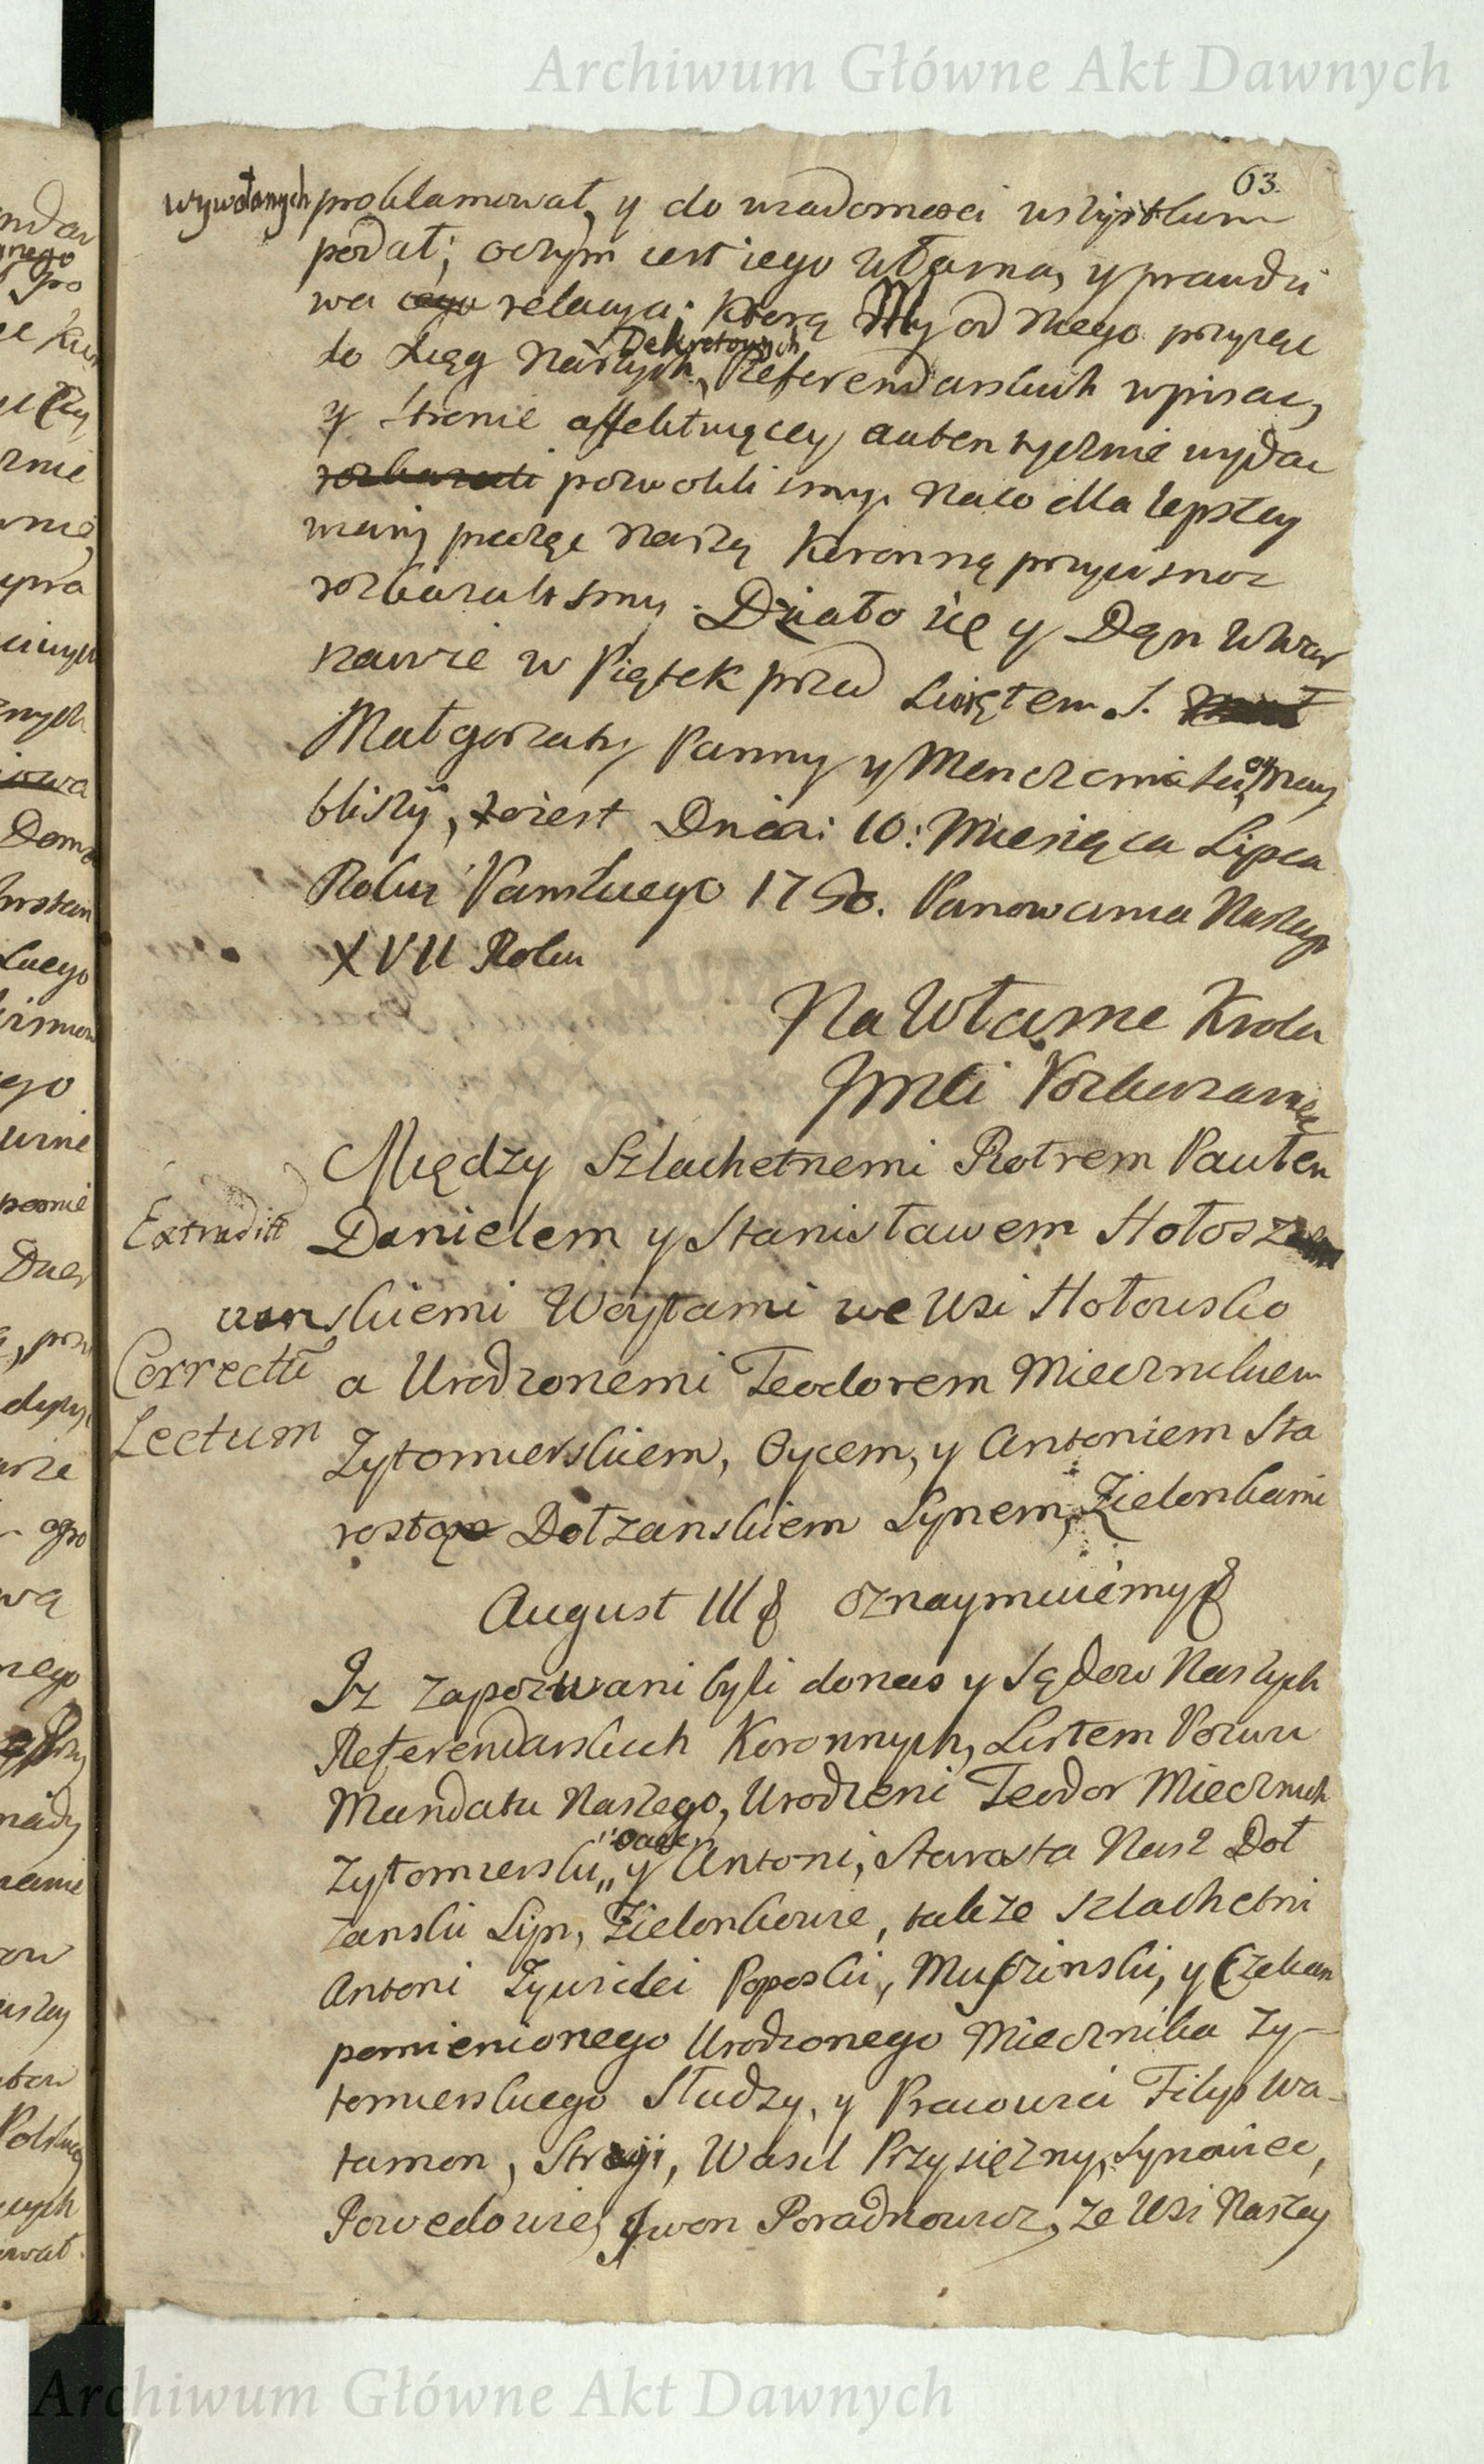 Archiwum Główne Akt Dawnych
63.
wywołanych proklamował, y do wiadomosci wszystkim
podał; oczym iest iego własna, y prawdzi
wa relacya; ktorą My od niego przyiąć
do Xiąg Naszych Dekretowych Referendarskich wpisać,
y stronie affektuiącey autentycznie wydać
rozkazali pozwolili smy. Naco dla lepszey
wiary pieczęć Naszą Koronną przycisnąć
rozkazalismy. Działo się y Dąn w War
szawie w Piątek przed Swiętem S.
Małgorzaty Panny y Męczenniczki
bliszy, to iest Dnia: 10: Miesiąca Lipca
Roku Pańskiego 1750. Panowania Naszego
XVII Roku
Na Własne Krola
Jmći Rozkazanie
Między Szlachetnemi Piotrem Pawłem
Extradit Danielem y Stanisławem Hołosz
skiemi Woytami we Wsi Hołowsko
Correctū a Urodzonemi Teodorem Miecznikiem
Lectum Zytomierskiem, Oycem, y Antoniem Sta
rostą Dołzańskiem Synem, Zielonkami
August III oznaymuiemy
Jz zapozwani byli donas y Sądow Naszych
Referendarskich Koronnych, Listem Pozwu
Mandatu Naszego, Urodzeni Teodor Miecznik
Zytomierski, Ociec y Antoni, Starosta Nasz Doł
zanski Syn, Zielonkowie, takze szlachetni
Antoni Zywicki Poposki, Muszinski, y Czekan
pomienionego Urodzonego Miecznika Zy-
tomierskiego Słudzy, y Pracowici Filip Wa-
taman, Stryi, Wasil Przysięzny, Synowiec,
Jwon Poradnowicz, ze Wsi Naszey
Archiwum Główne Akt Dawnych